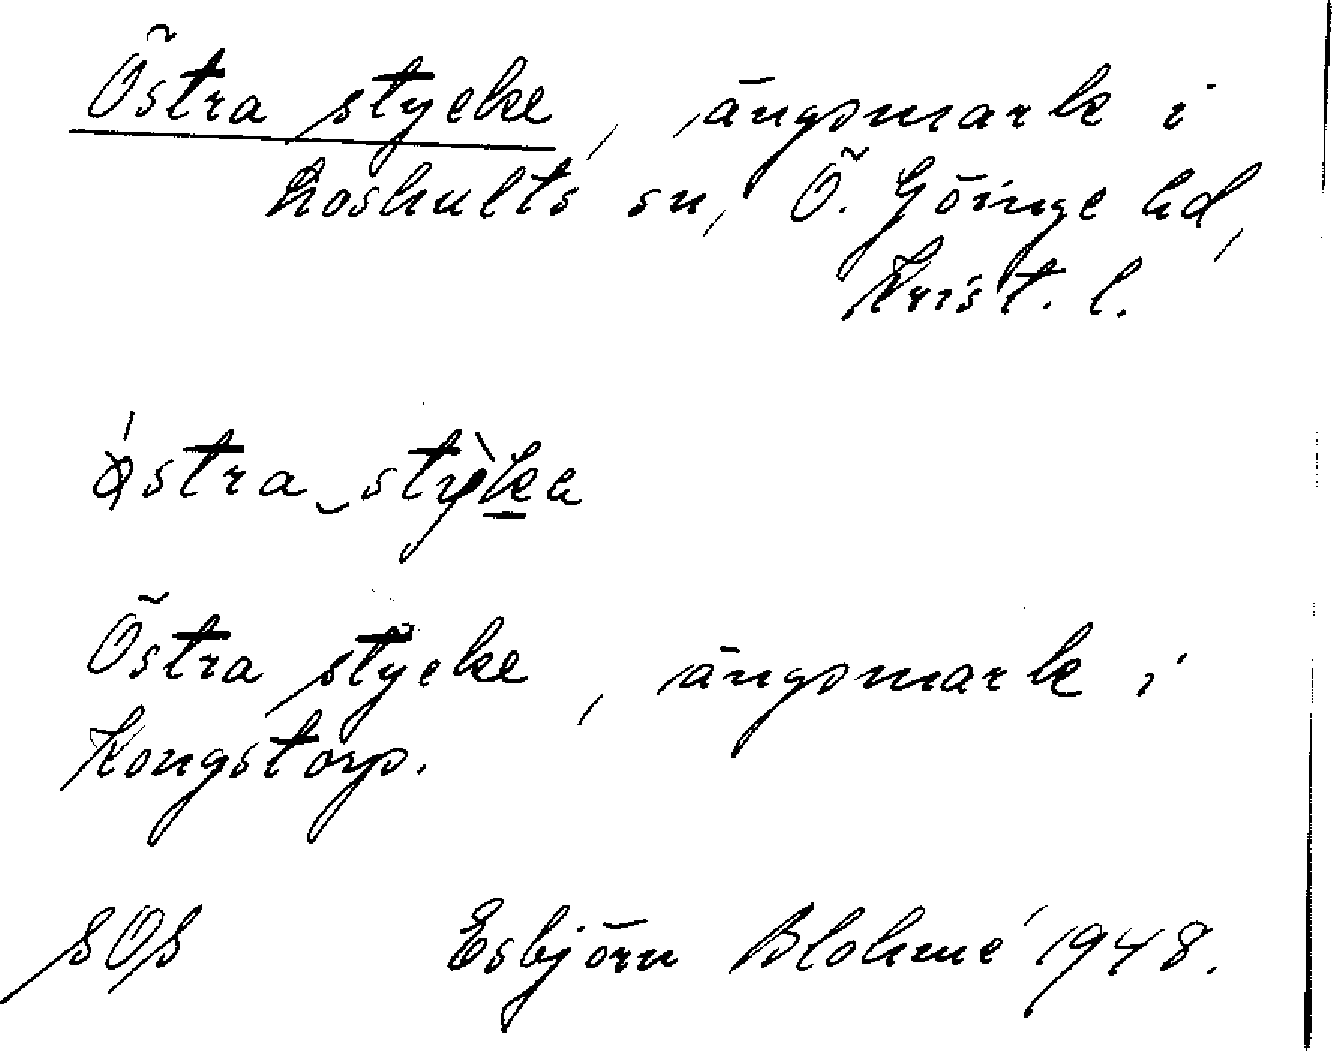 Östra stycke, ängsmark i
Loshults sn, Ö. Göinge hd,
Krist. l.
östra stỳka
Östra stycke, ängsmark i
Kongstorp.
SOS Esbjörn Blohmé 1948.